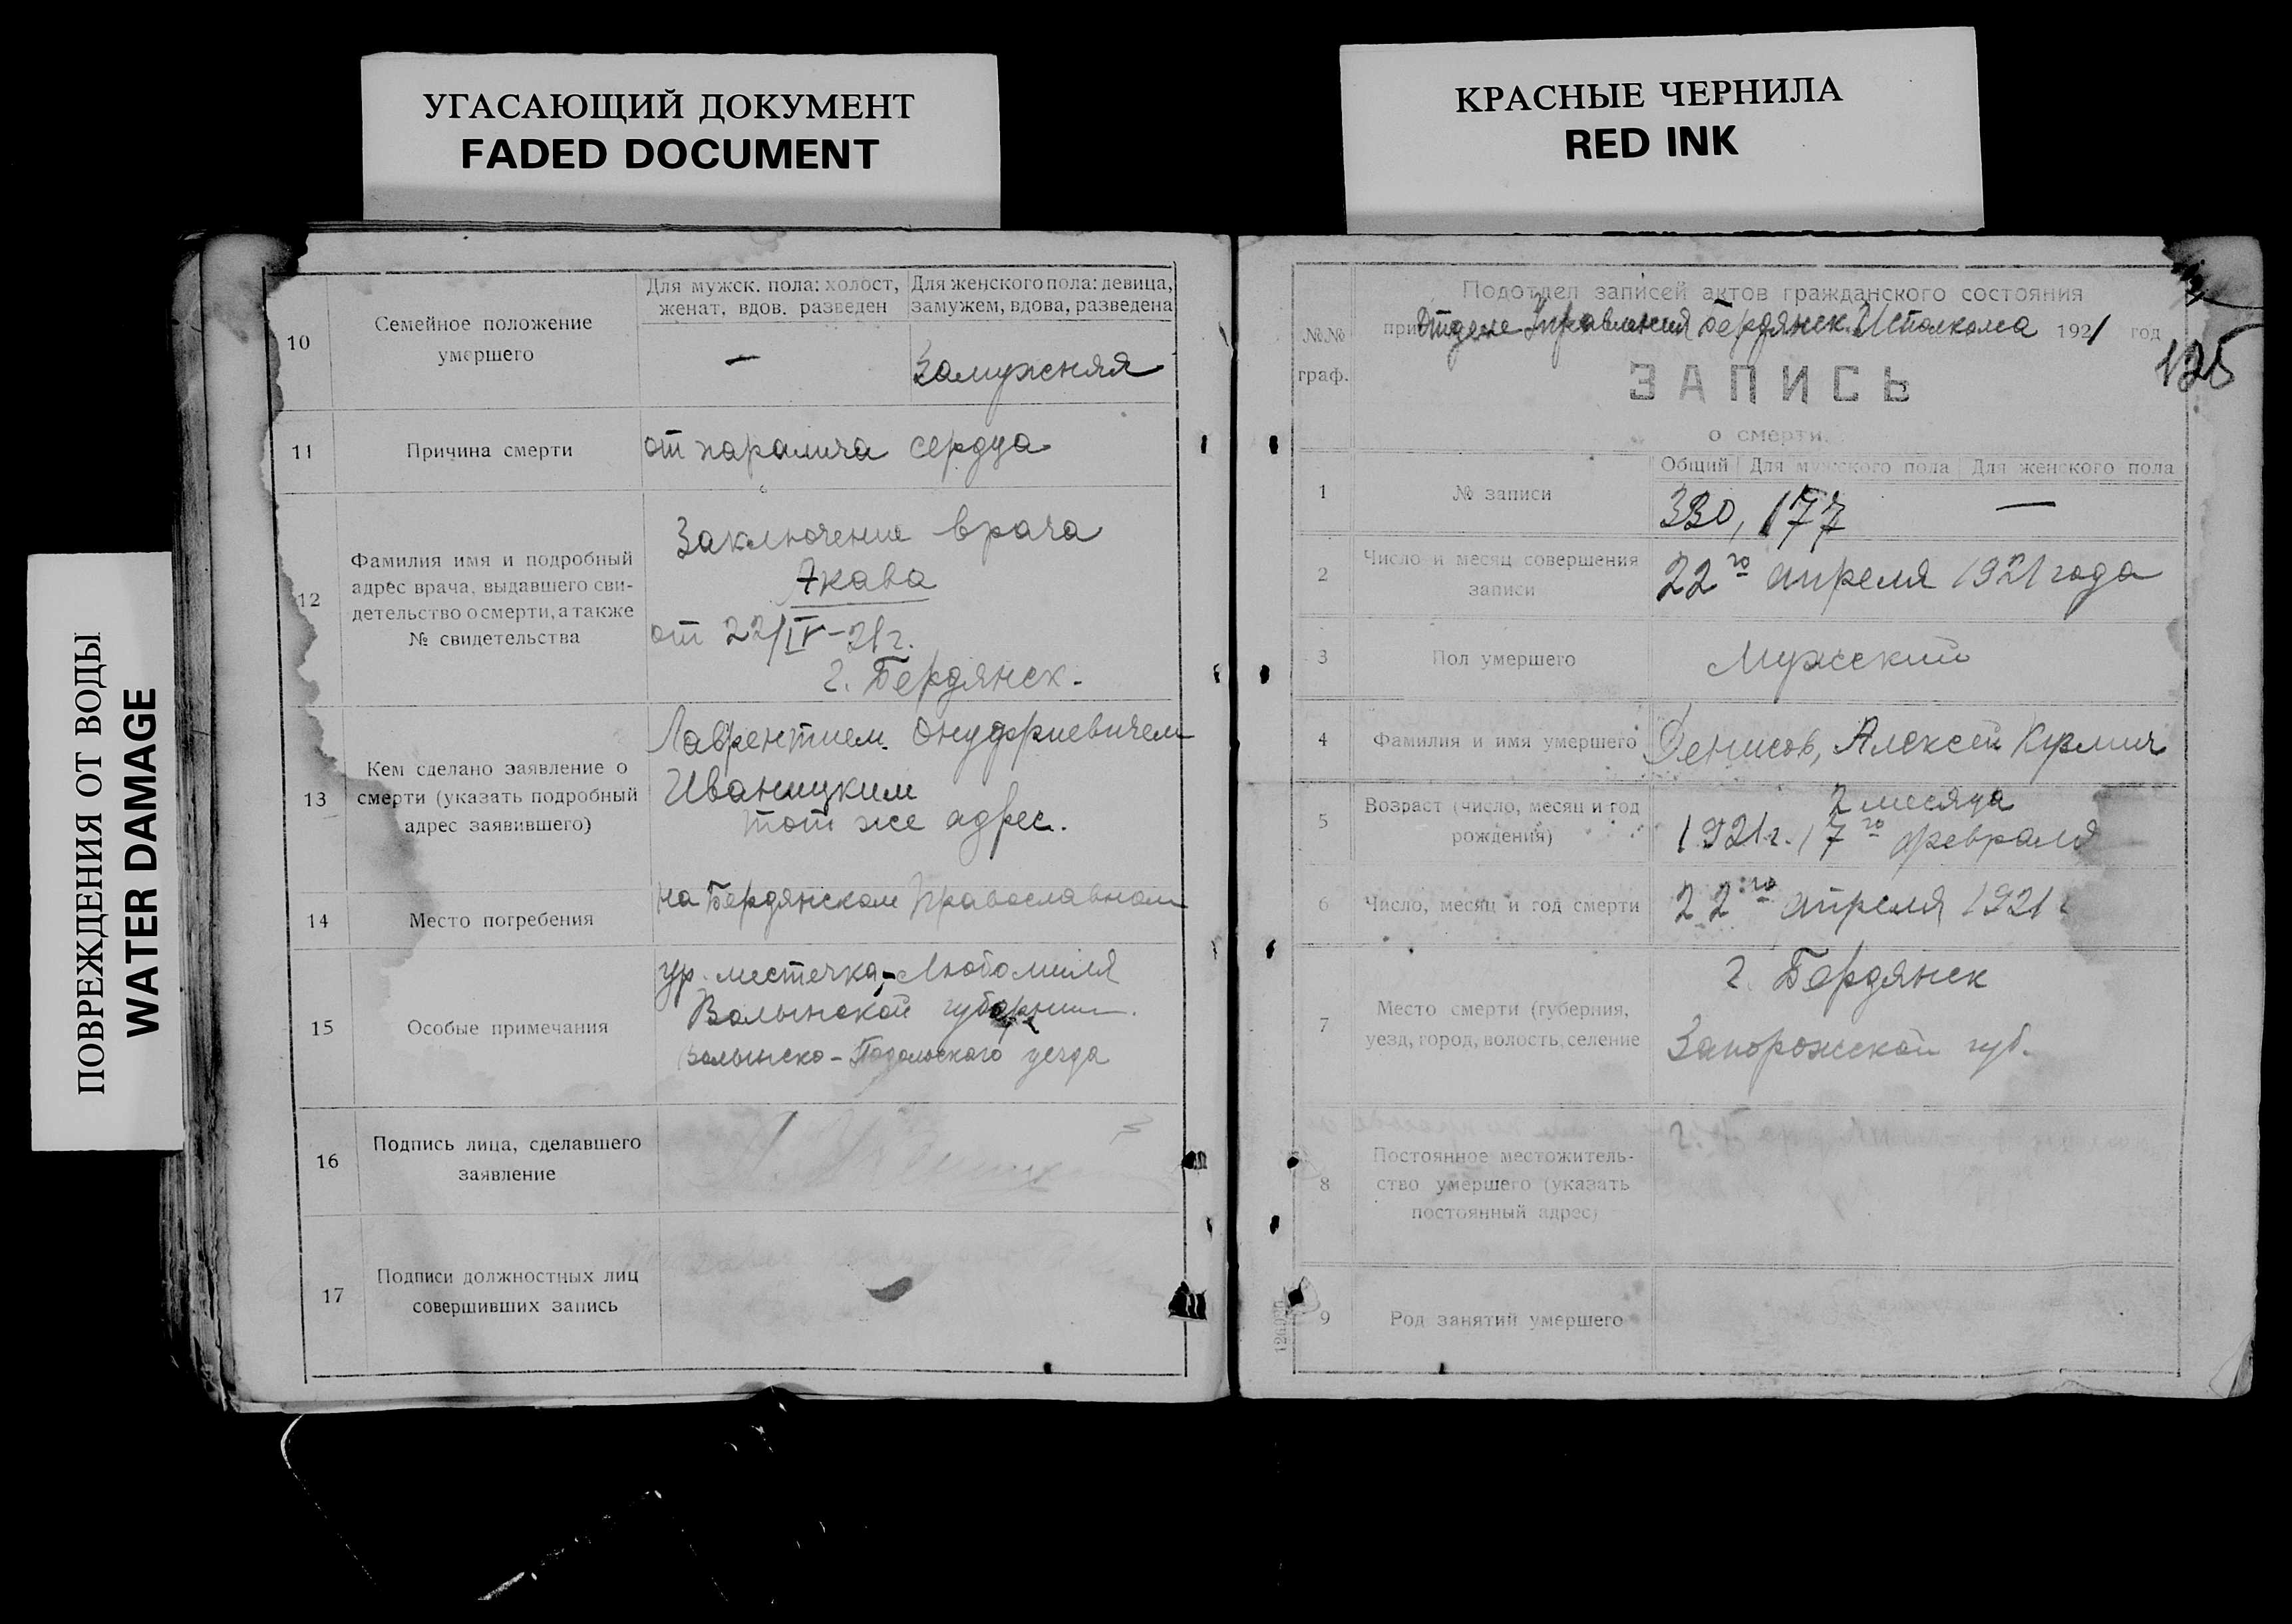 УГАСАЮЩИЙ ДОКУМЕНТ
FADED DOCUMENT
КРАСНЫЕ ЧЕРНИЛА
RED INK
ПОВРЕЖДЕНИЯ ОТ ВОДЫ
WATER DAMAGE
10
Семейное положение
умершего
Для мужск. пола: холост,
женат, вдов. разведен
Для женского пола: девица,
замужем, вдова, разведена
—
Замужняя
11
Причина смерти
от паралича сердца
12
Фамилия имя и подробный
адрес врача, выдавшего сви-
детельство о смерти, а также
№ свидетельства
Заключение врача
Акава
от 22/IV-21г.
г. Бердянск.
13
Кем сделано заявление о
смерти (указать подробный
адрес заявившего)
Лаврентием Онуфриевичем
Иваницким
тот же адрес.
14
Место погребения
на Бердянском Православном
15
Особые примечания
ур. местечка Любомиля
Волынской губернии.
Волынско-Подольского уезда
16
Подпись лица, сделавшего
заявление
17
Подписи должностных лиц
совершивших запись
125
№№
граф.
Подотдел записей актов гражданского состояния
при Отделе Управления Бердянск. Исполкома 1921 год
ЗАПИСЬ
о смерти.
1
№ записи
Общий
Для мужского пола
Для женского пола
330, 177 —
2
Число и месяц совершения
записи
22го апреля 1921 года
3
Пол умершего
Мужский
4
Фамилия и имя умершего
Денисов, Алексей
5
Возраст (число, месяц и год
рождения)
2 месяца
1921г. 17го февраля
6
Число, месяц и год смерти
22го апреля 1921 г
7
Место смерти (губерния,
уезд, город, волость, селение
г. Бердянск
Запорожской губ.
8
Постоянное местожитель-
ство умершего (указать
постоянный адрес)
г.
9
Род занятий умершего